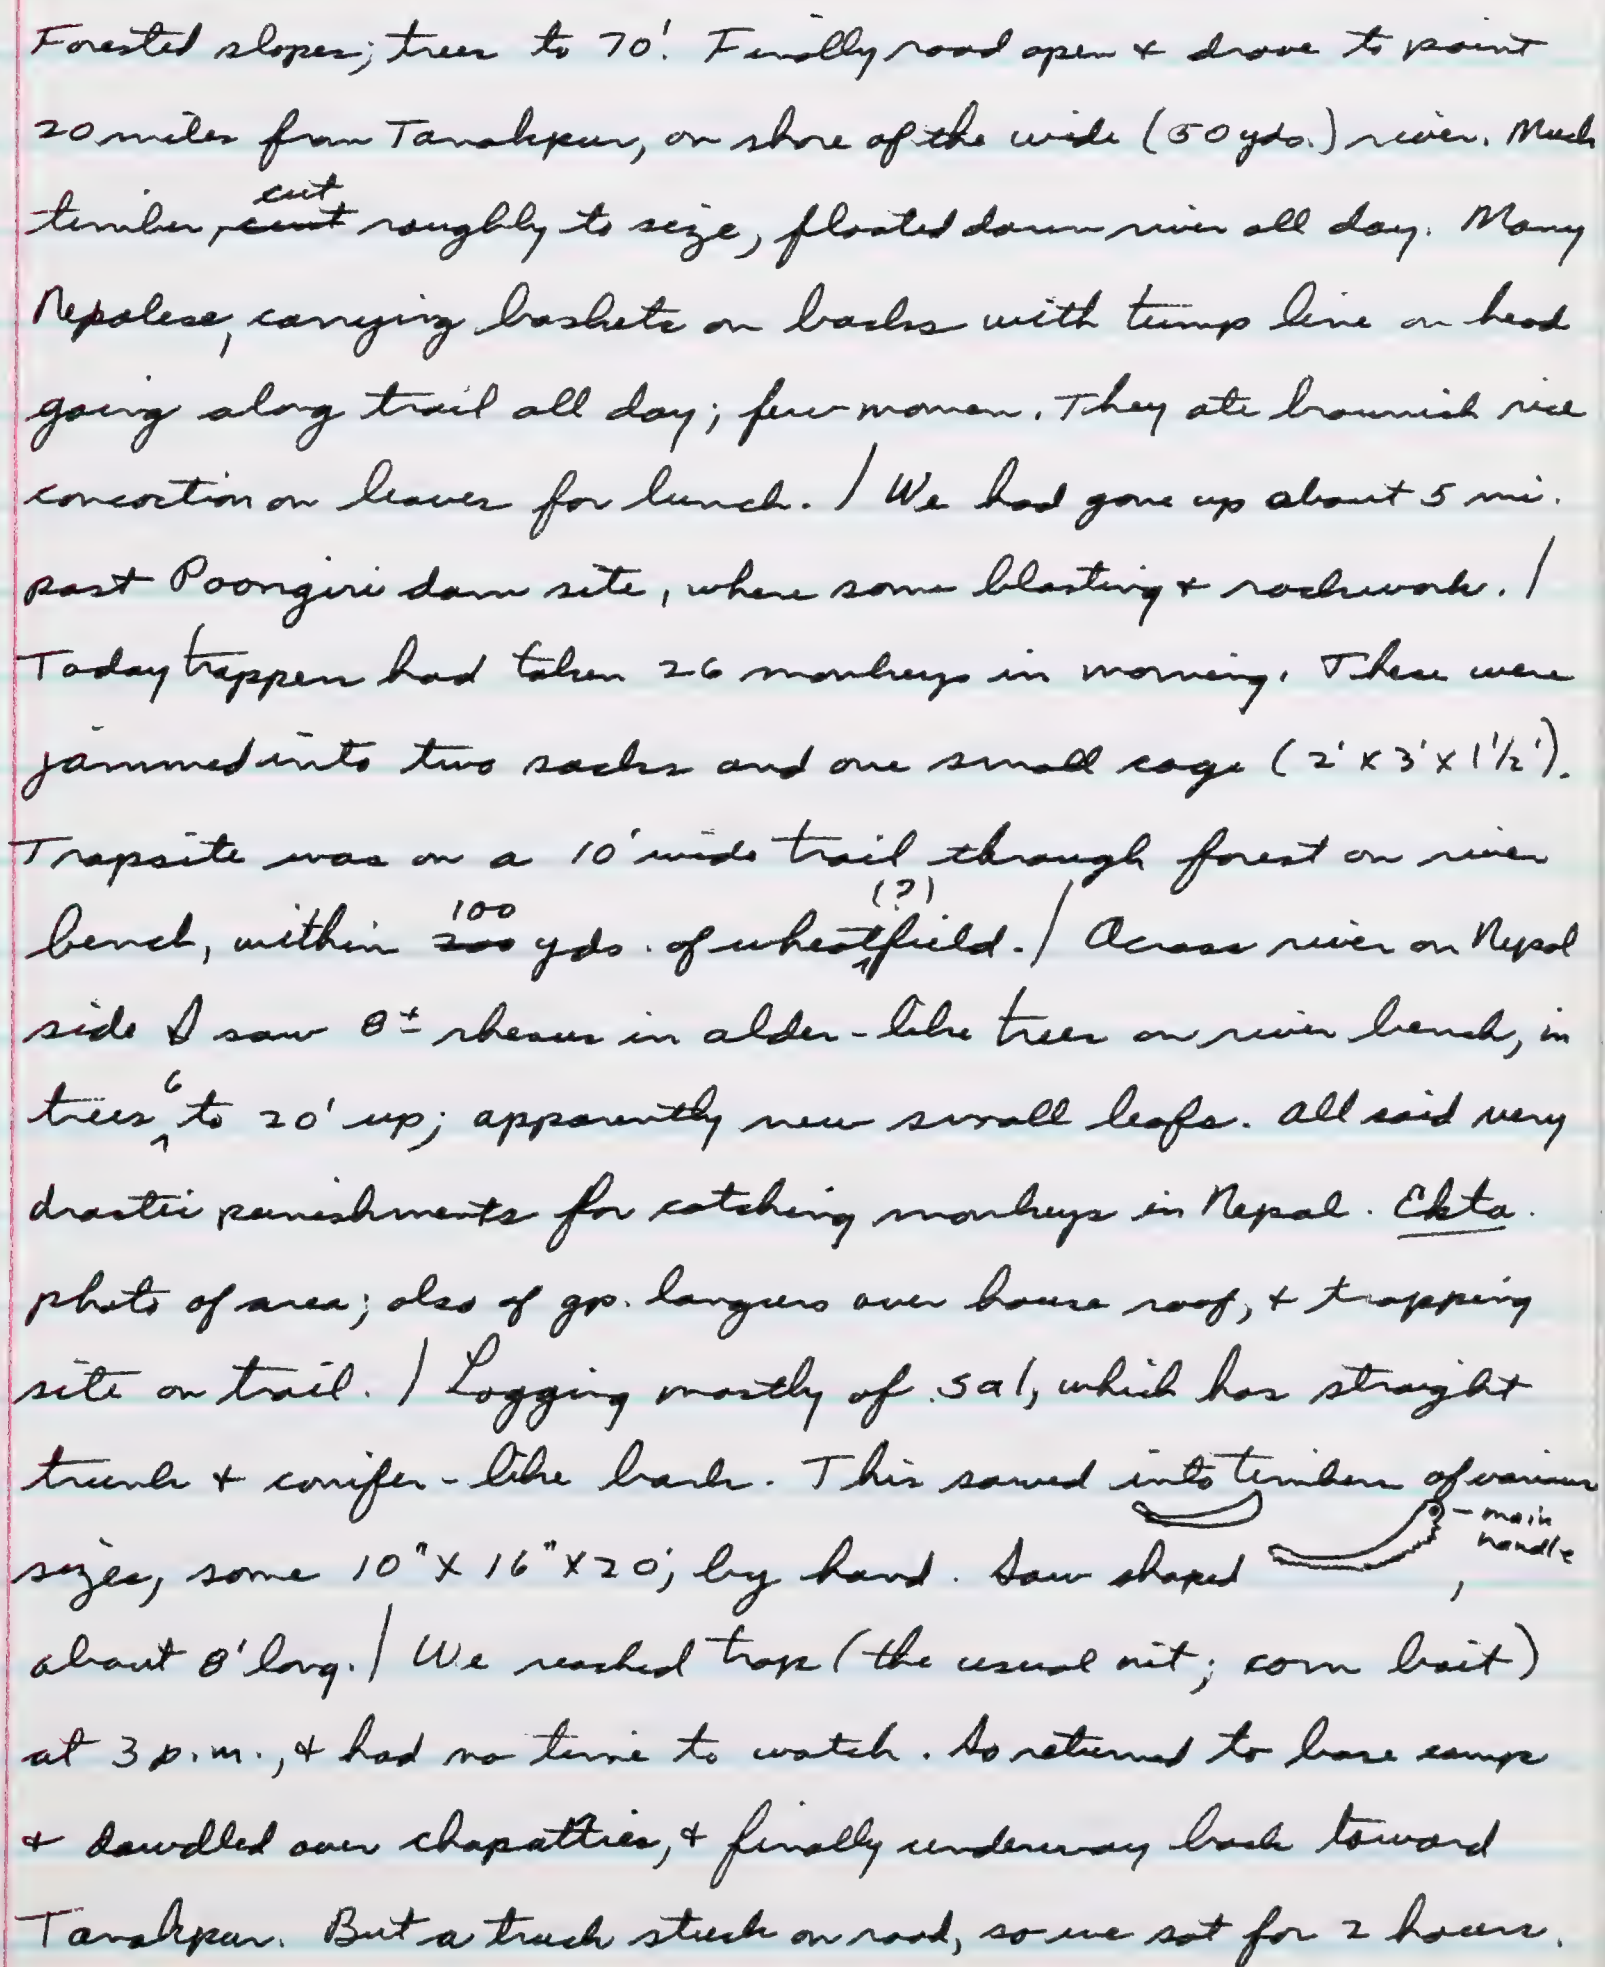 Forested slopes; trees to 70'. Finally road open & drove to point
20 miles from Tanakpur, on shore of the wide (50 yds.) river. Much
cut
timber, roughly to size, floated down river all day. Many
Nepalese, carrying baskets on backs with tump line on head
going along trail all day; few women. They ate brownish rice
concoction on leaves for lunch. / We had gone up about 5 mi.
past Poongiri dam site, where some blasting & rockwork. /
Today trappers had taken 26 monkeys in morning. These were
jammed into two sacks and one small cage (2' x 3' x 1 1/2').
Trapsite was on a 10' wide trail through forest on river
100 (?)
bench, within yds. of wheatfield. / Across river on Nepal
side I saw 8± rhesus in alder-like trees on river bench, in
6
trees to 20' up; apparently new small leafs. All said very
drastic punishments for catching monkeys in Nepal. Ekta.
photo of area; also of gp. langurs over house roof, & trapping
site on trail. / Logging mostly of sal, which has straight
trunk & conifer-like bark. This sawed into timbers of various
- main
handle
sizes, some 10" x 16" x 20', by hand. Saw shaped ,
about 8' long. / We reached trap (the usual nit; corn bait)
at 3 p.m., & had no time to watch. So returned to base camp
& dawdled over chapatties, & finally underway back toward
Tanakpur. But a truck stuck on road, so we sat for 2 hours.